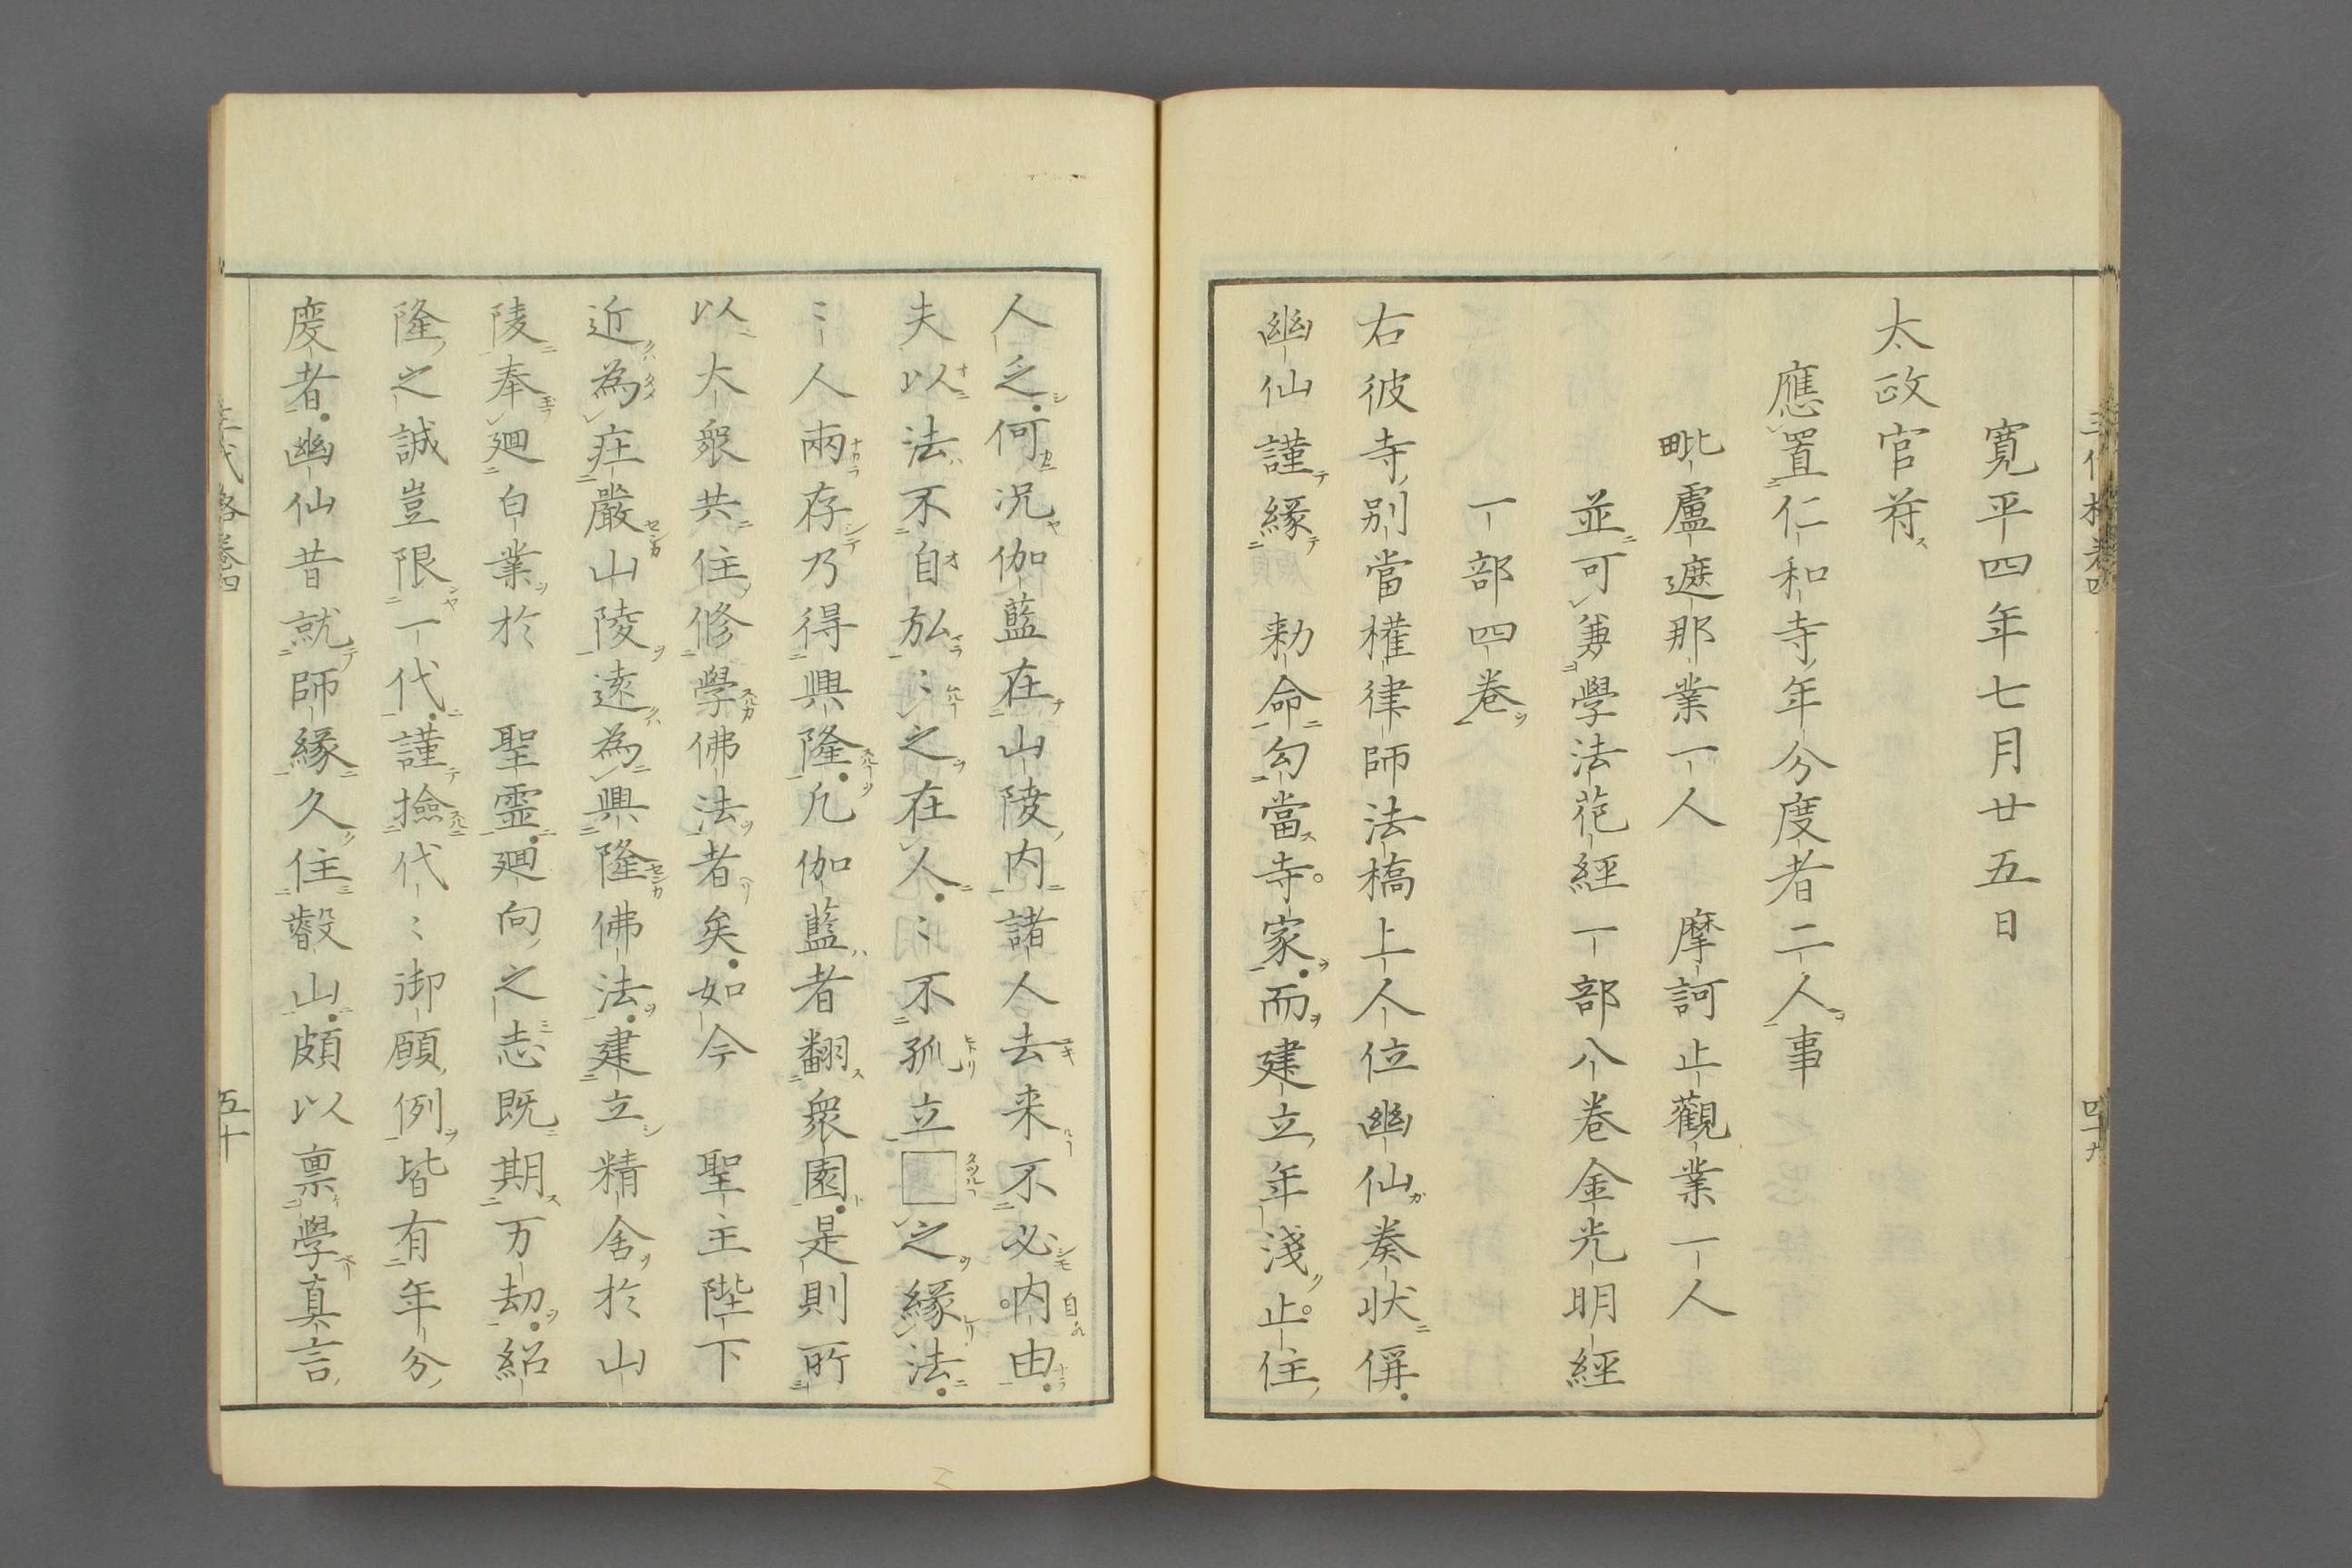 寛平四年七月廿五日
太政官符
應置仁和寺年分度者二人事
毗盧遮那業一人　摩訶止觀業一人
並可兼學法花經一部八卷金光明經
一部四卷
右彼寺別當權律師法橋上人位幽仙奏狀偁
幽仙謹緣　勅命勾當寺家而建立年淺止住
人乏何况伽藍在山陵内諸人去来不必内由
夫以法不自弘〻之在人〻不孤立□之緣法
〻人兩存乃得興隆凢伽藍者翻衆園是則所
以大衆共住修學佛法者矣如今　聖主陛下
近為庄嚴山陵遠為興隆佛法建立精舎於山
陵奉廻白業於　聖霊廻向之志既期万劫紹
隆之誠豈限一代謹撿代〻御願例皆有年分
度者幽仙昔就師緣久住叡山頗以禀學真言
五十